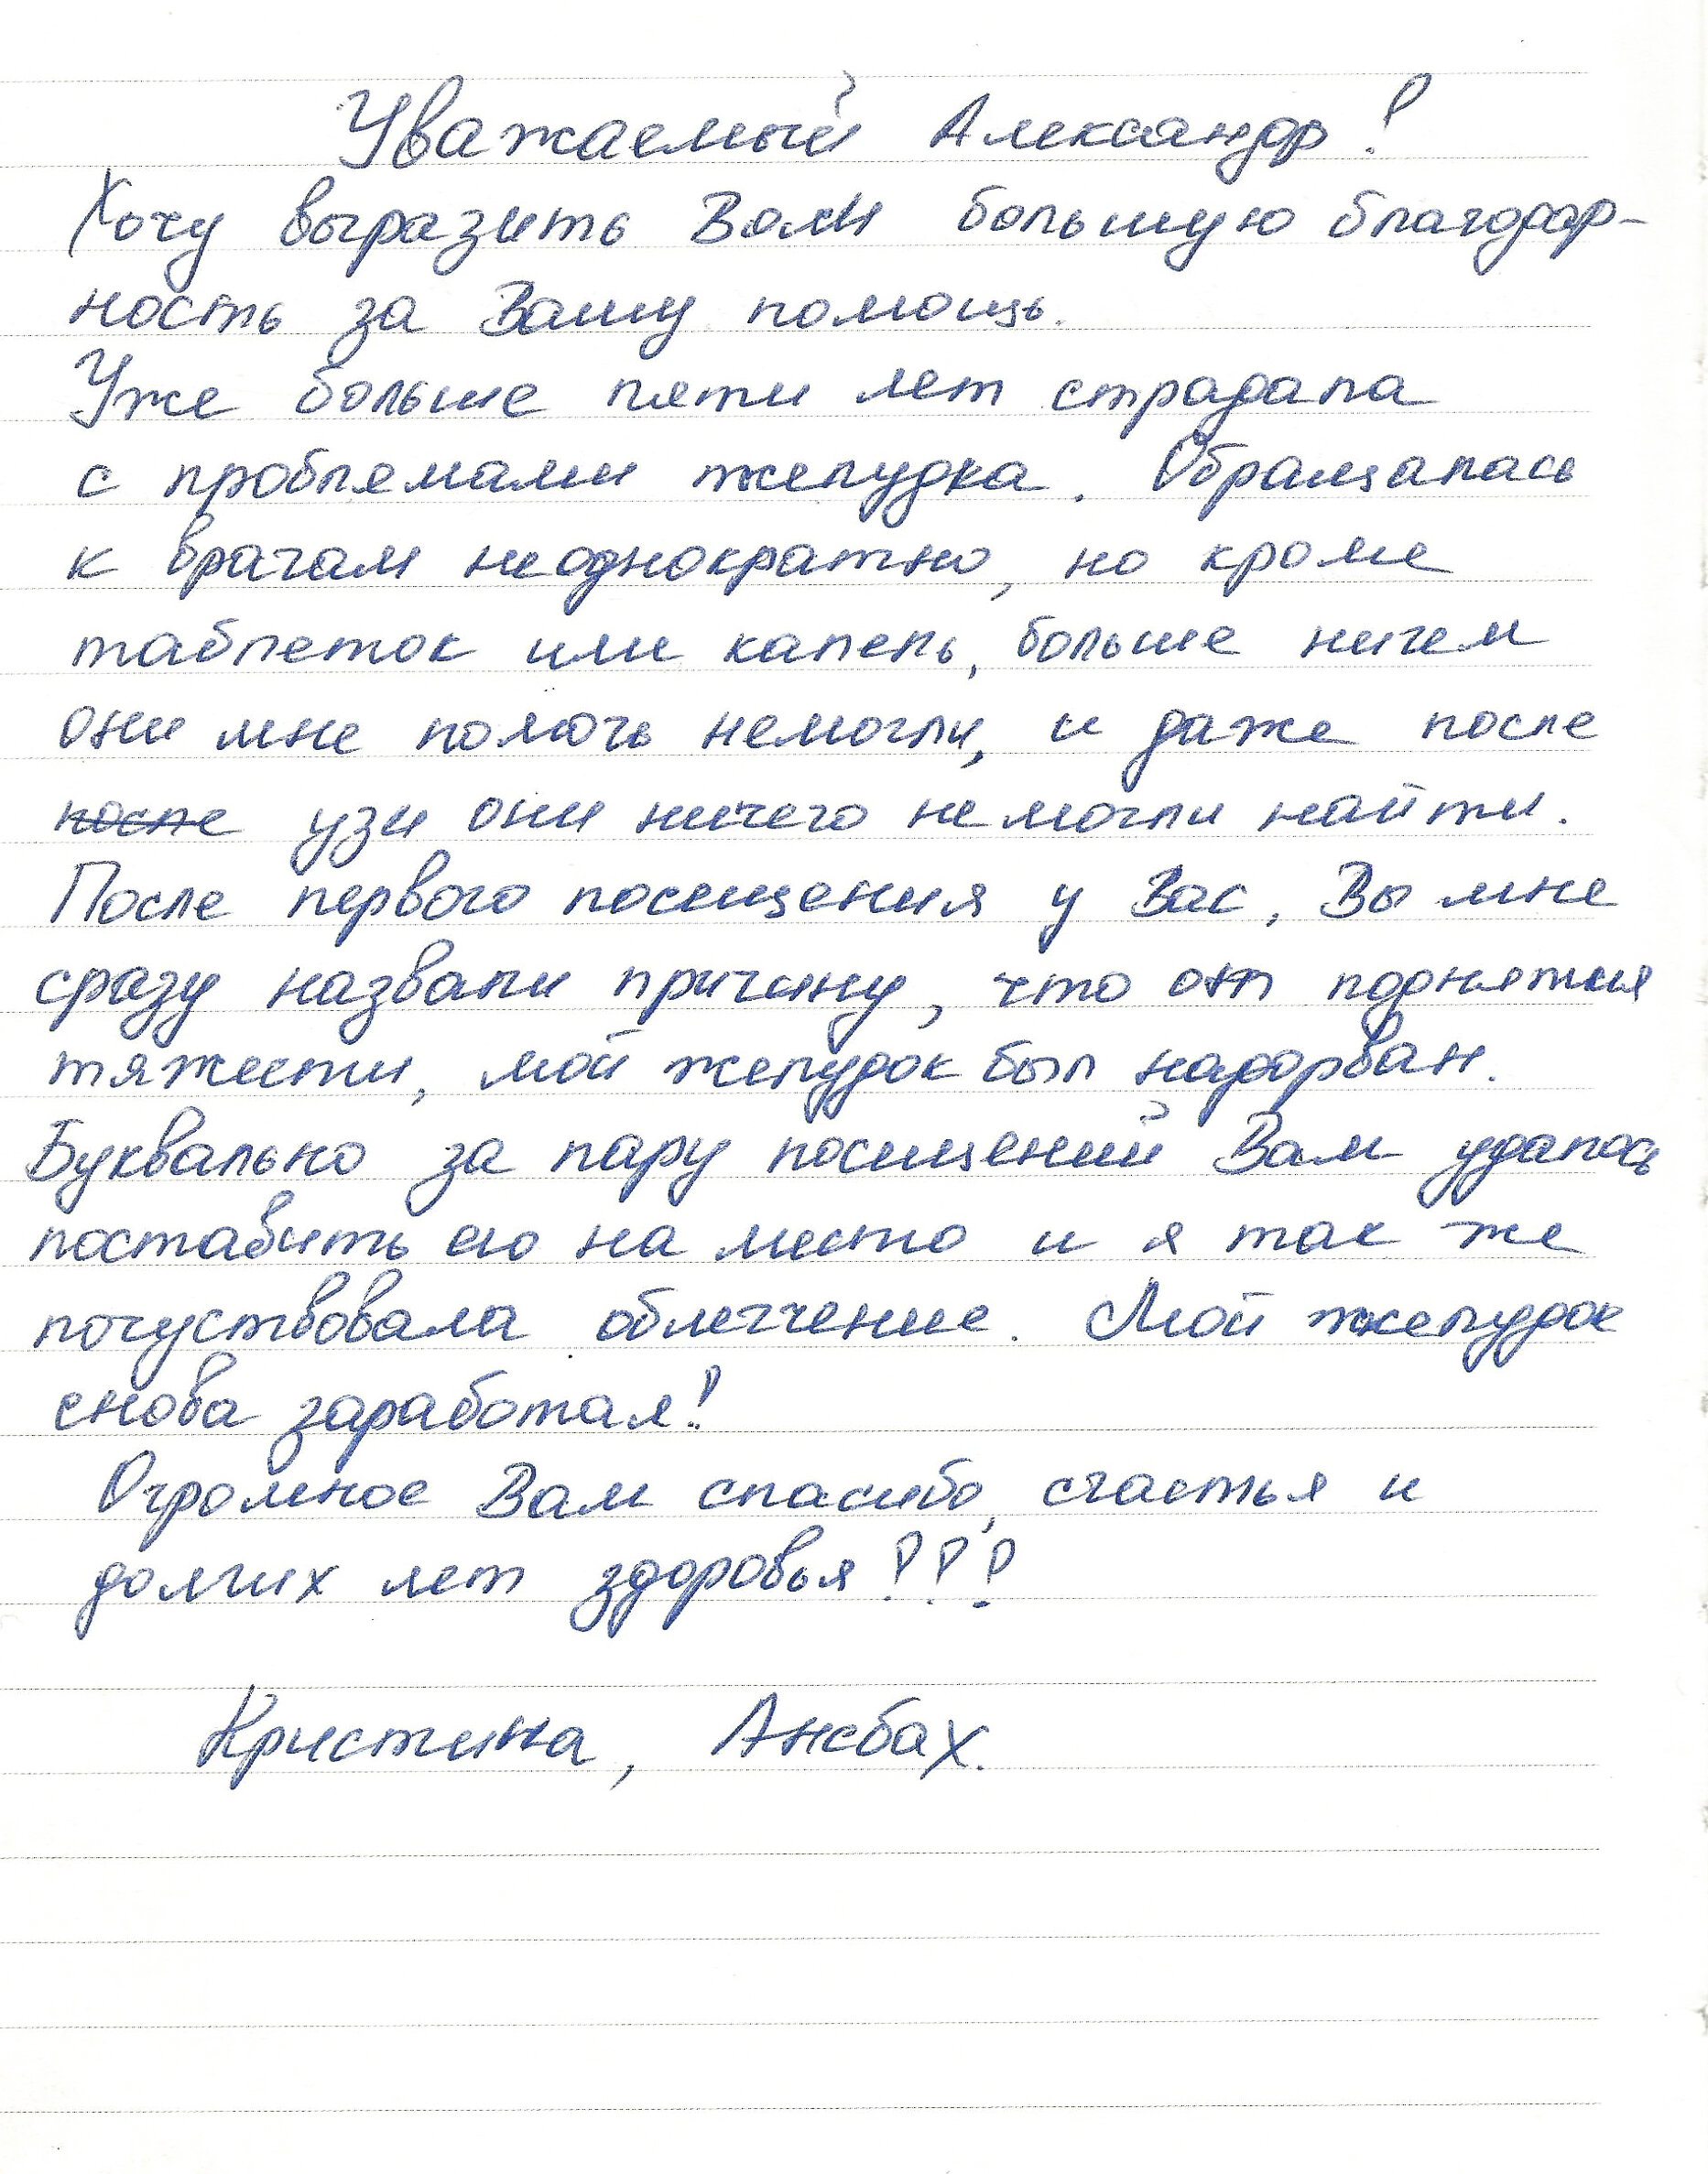 Уважаемый Александр!
Хочу выразить Вам большую благодар-
ность за Вашу помощь.
Уже больше пяти лет страдала
с проблемами желудка. Обращалась
к врачам неоднократно, но кроме
таблеток или капель, больше ничем
они мне помочь немогли, и даже после
после узи они ничего немогли найти.
После первого посещения у Вас, Вы мне
сразу назвали причину, что от поднятия
тяжести, мой желудок был надорван.
Буквально за пару посищений Вам удалось
поставить его на место и я так же
почуствовала облегчение. Мой желудок
снова заработал!
Огромное Вам спасибо, счастья и
долгих лет здоровья!!!
Кристина, Ансбах.